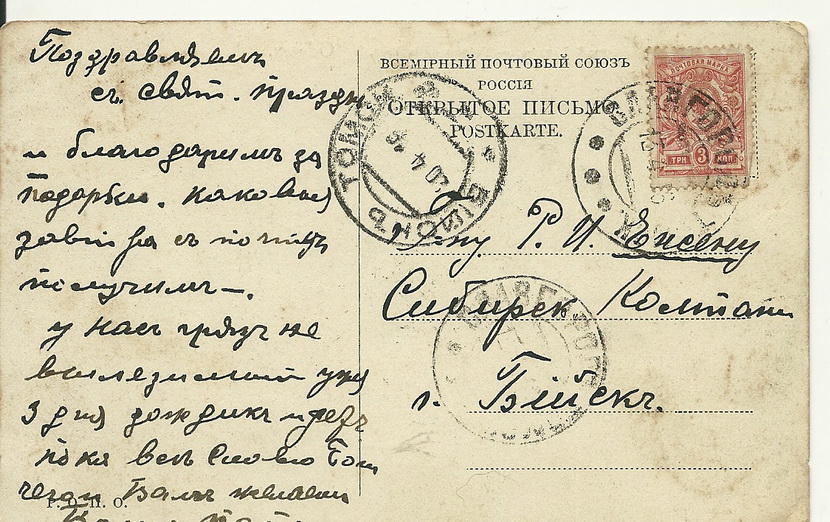 Поздравляемъ
съ свят. праздн
и благодаримъ за
подарки. каковые
завтра съ почты
получимъ.
у насъ грязь не
вылезимая уже
3 дня дождикъ идетъ
пока всъ Слава Богу
чего и Вамъ желаем
Р. О. П. О.
ВСЕМІРНЫЙ ПОЧТОВЫЙ СОЮЗЪ
РОССІЯ
ОТКРЫТОЕ ПИСЬМО
POSTKARTE.
ПОЧТОВАЯ МАРКА
ТРИ 3 КОП
БІЙСКЪ ТОМСК
20 4
СЛАВГОРОДЪ
Г-ну Р. И. Енсену
Сибирск Компани
СЛАВГОРОД
г. Бійскъ.